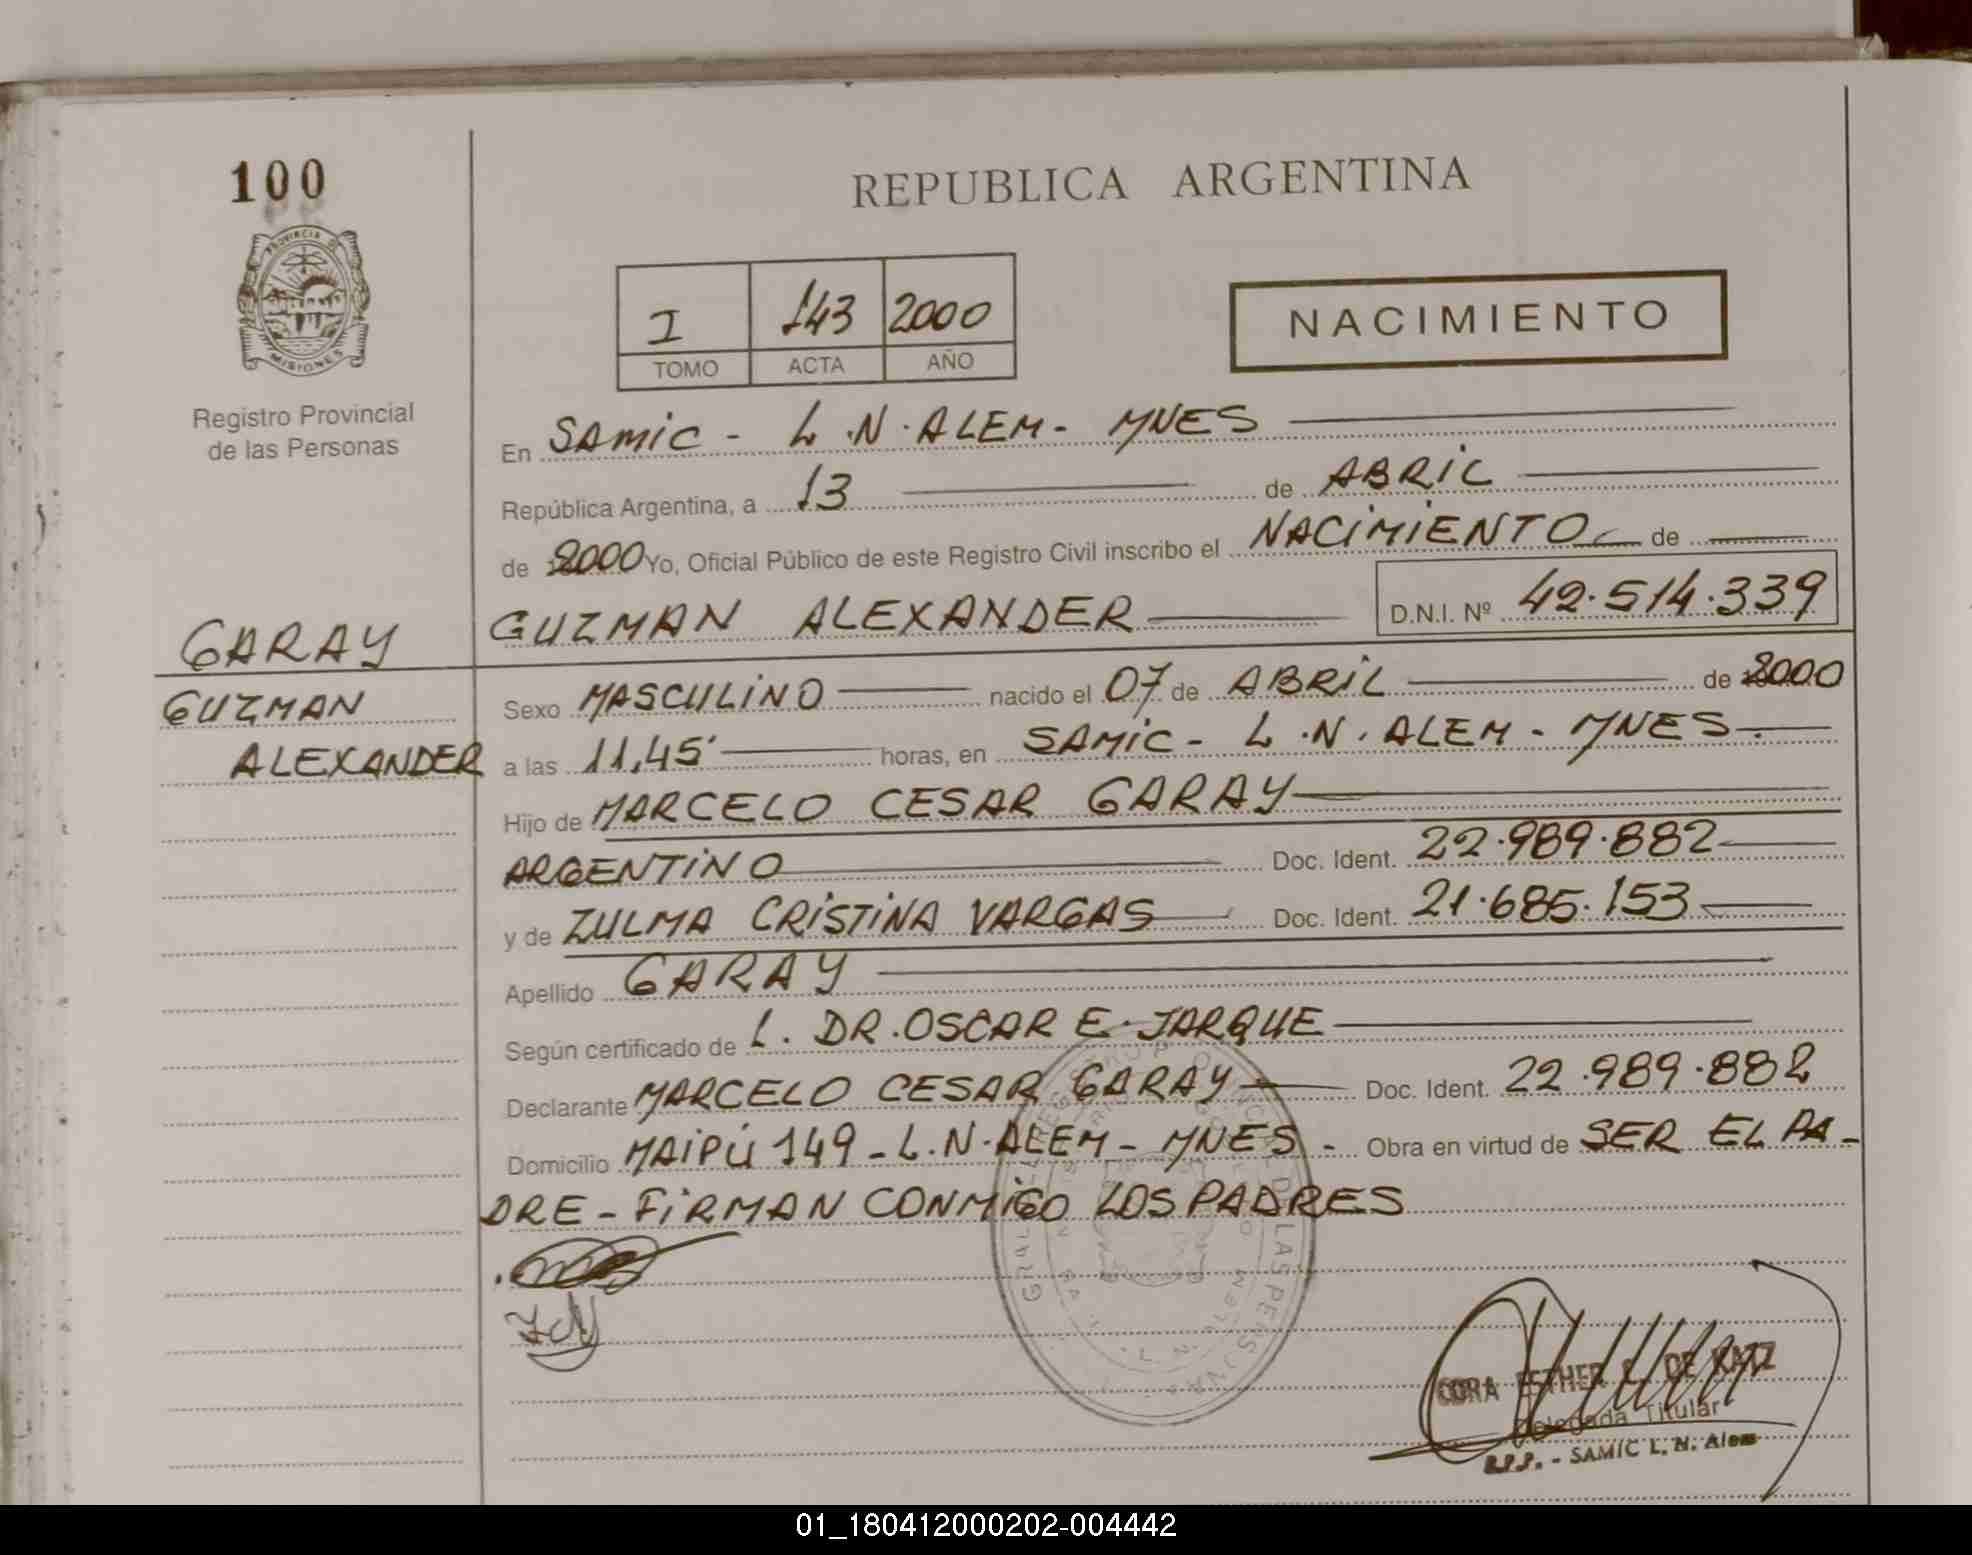 100
REPUBLICA ARGENTINA
PROVINCIA DE
MISIONES
Registro Provincial
de las Personas
I 143 2000
TOMO ACTA AÑO
NACIMIENTO
En SAMIC - L.N.ALEM- MNES
República Argentina, a 13 de ABRIL
de 2000 Yo, Oficial Público de este Registro Civil inscribo el NACIMIENTO de
GUZMAN ALEXANDER D.N.I. Nº 42.514.339
GARAY
GUZMAN
ALEXANDER
Sexo MASCULINO nacido el 07 de ABRIL de 2000
a las 11,45' horas, en SAMIC - L.N. ALEM - MNES.
Hijo de MARCELO CESAR GARAY
ARGENTINO Doc. Ident. 22.989.882
y de ZULMA CRISTINA VARGAS Doc. Ident. 21.685.153
Apellido GARAY
Según certificado de L. DR. OSCAR E. JARQUE
Declarante MARCELO CESAR GARAY Doc. Ident. 22.989.882
Domicilio MAIPÚ 149 - L.N.ALEM - MNES - Obra en virtud de SER EL PA-
DRE - FIRMAN CONMIGO LOS PADRES
CORA ESTHER DE KATZ
Delegada Titular
R.P.P. - SAMIC L. N. Alem
01_180412000202-004442